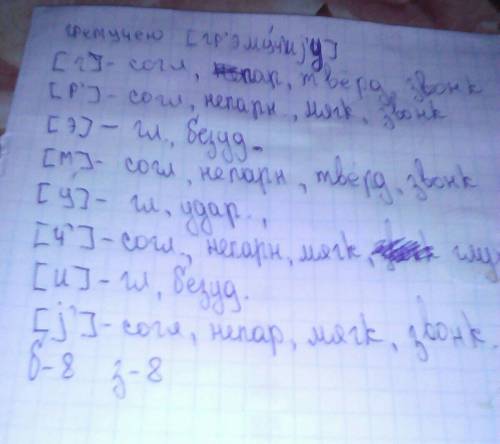 гремучею [гр'эму́ч'иj'у]
[г]- согл, пар, твёрд, звонк
[р']- согл, непарн, мягк, звонк
[э] - гл, безуд.
[м]- согл, непарн, твёрд, звонк
[у]- гл, удар.,
[ч']- согл, непарн, мягк, глух
[и]- гл, безуд.
[j']- согл, непар, мягк, звонк.
б-8 з-8